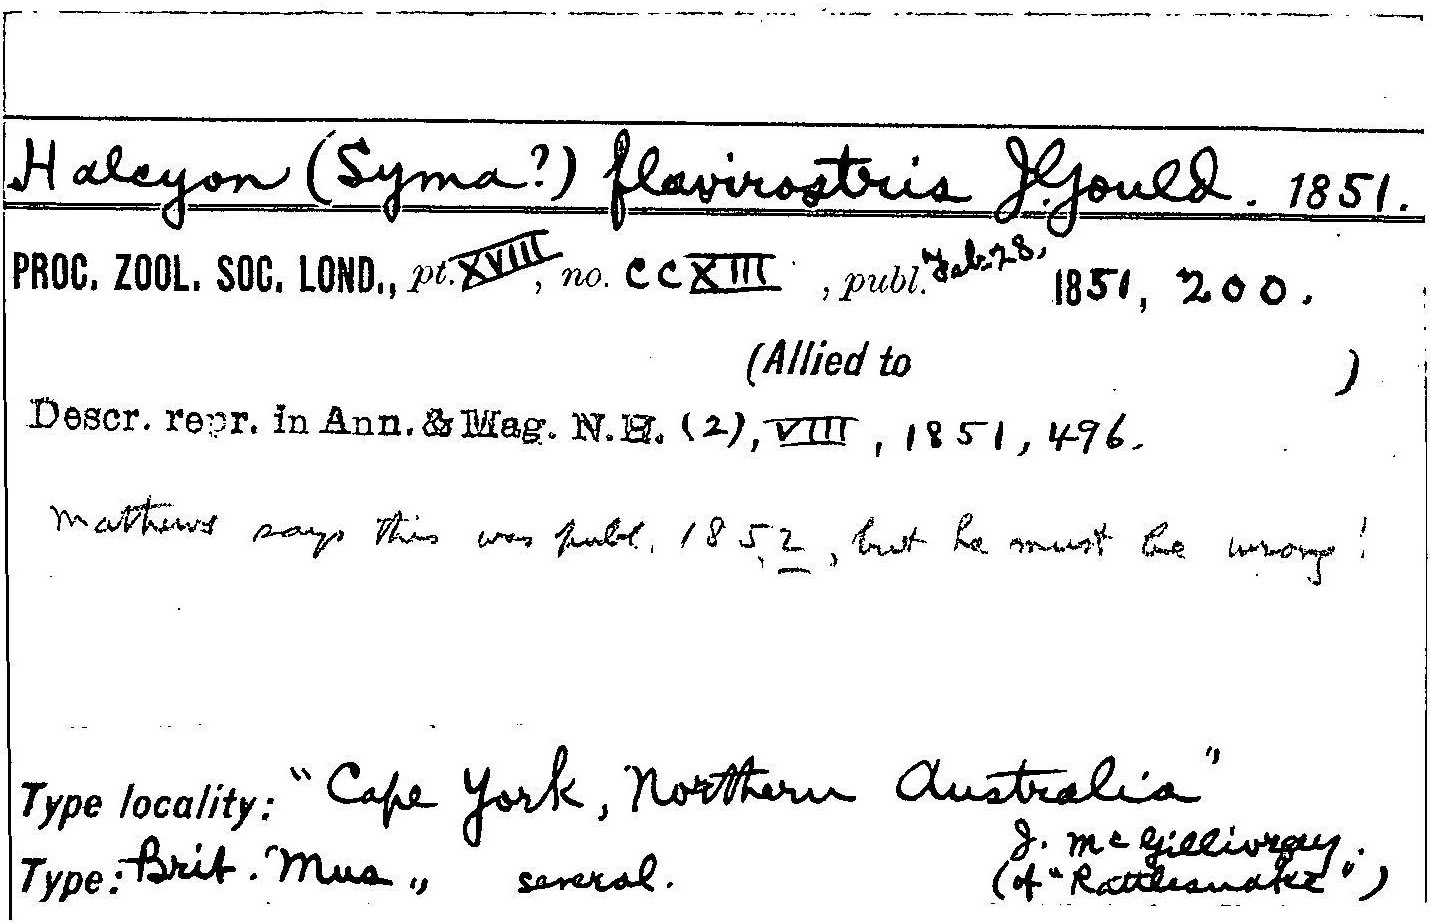 Halcyon (Syma?) flavirostris J. Gould. 1851.
PROC. ZOOL. SOC. LOND., pt. XVIII, no. CCXIII, publ. Feb. 28, 1851, 200.
(Allied to )
Descr. repr. in Ann. & Mag. N.H. (2), VIII, 1851, 496.
Mathews says this was publ. 1852, but he must be wrong!
Type locality: "Cape York, Northern Australia"
J. McGillivray.
Type: Brit. Mus., several. (of "Rattlesnake")